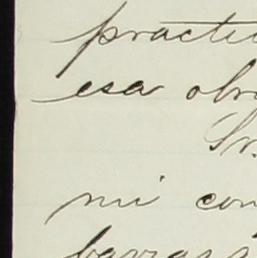 practic
esa obr
Sr.
mi con